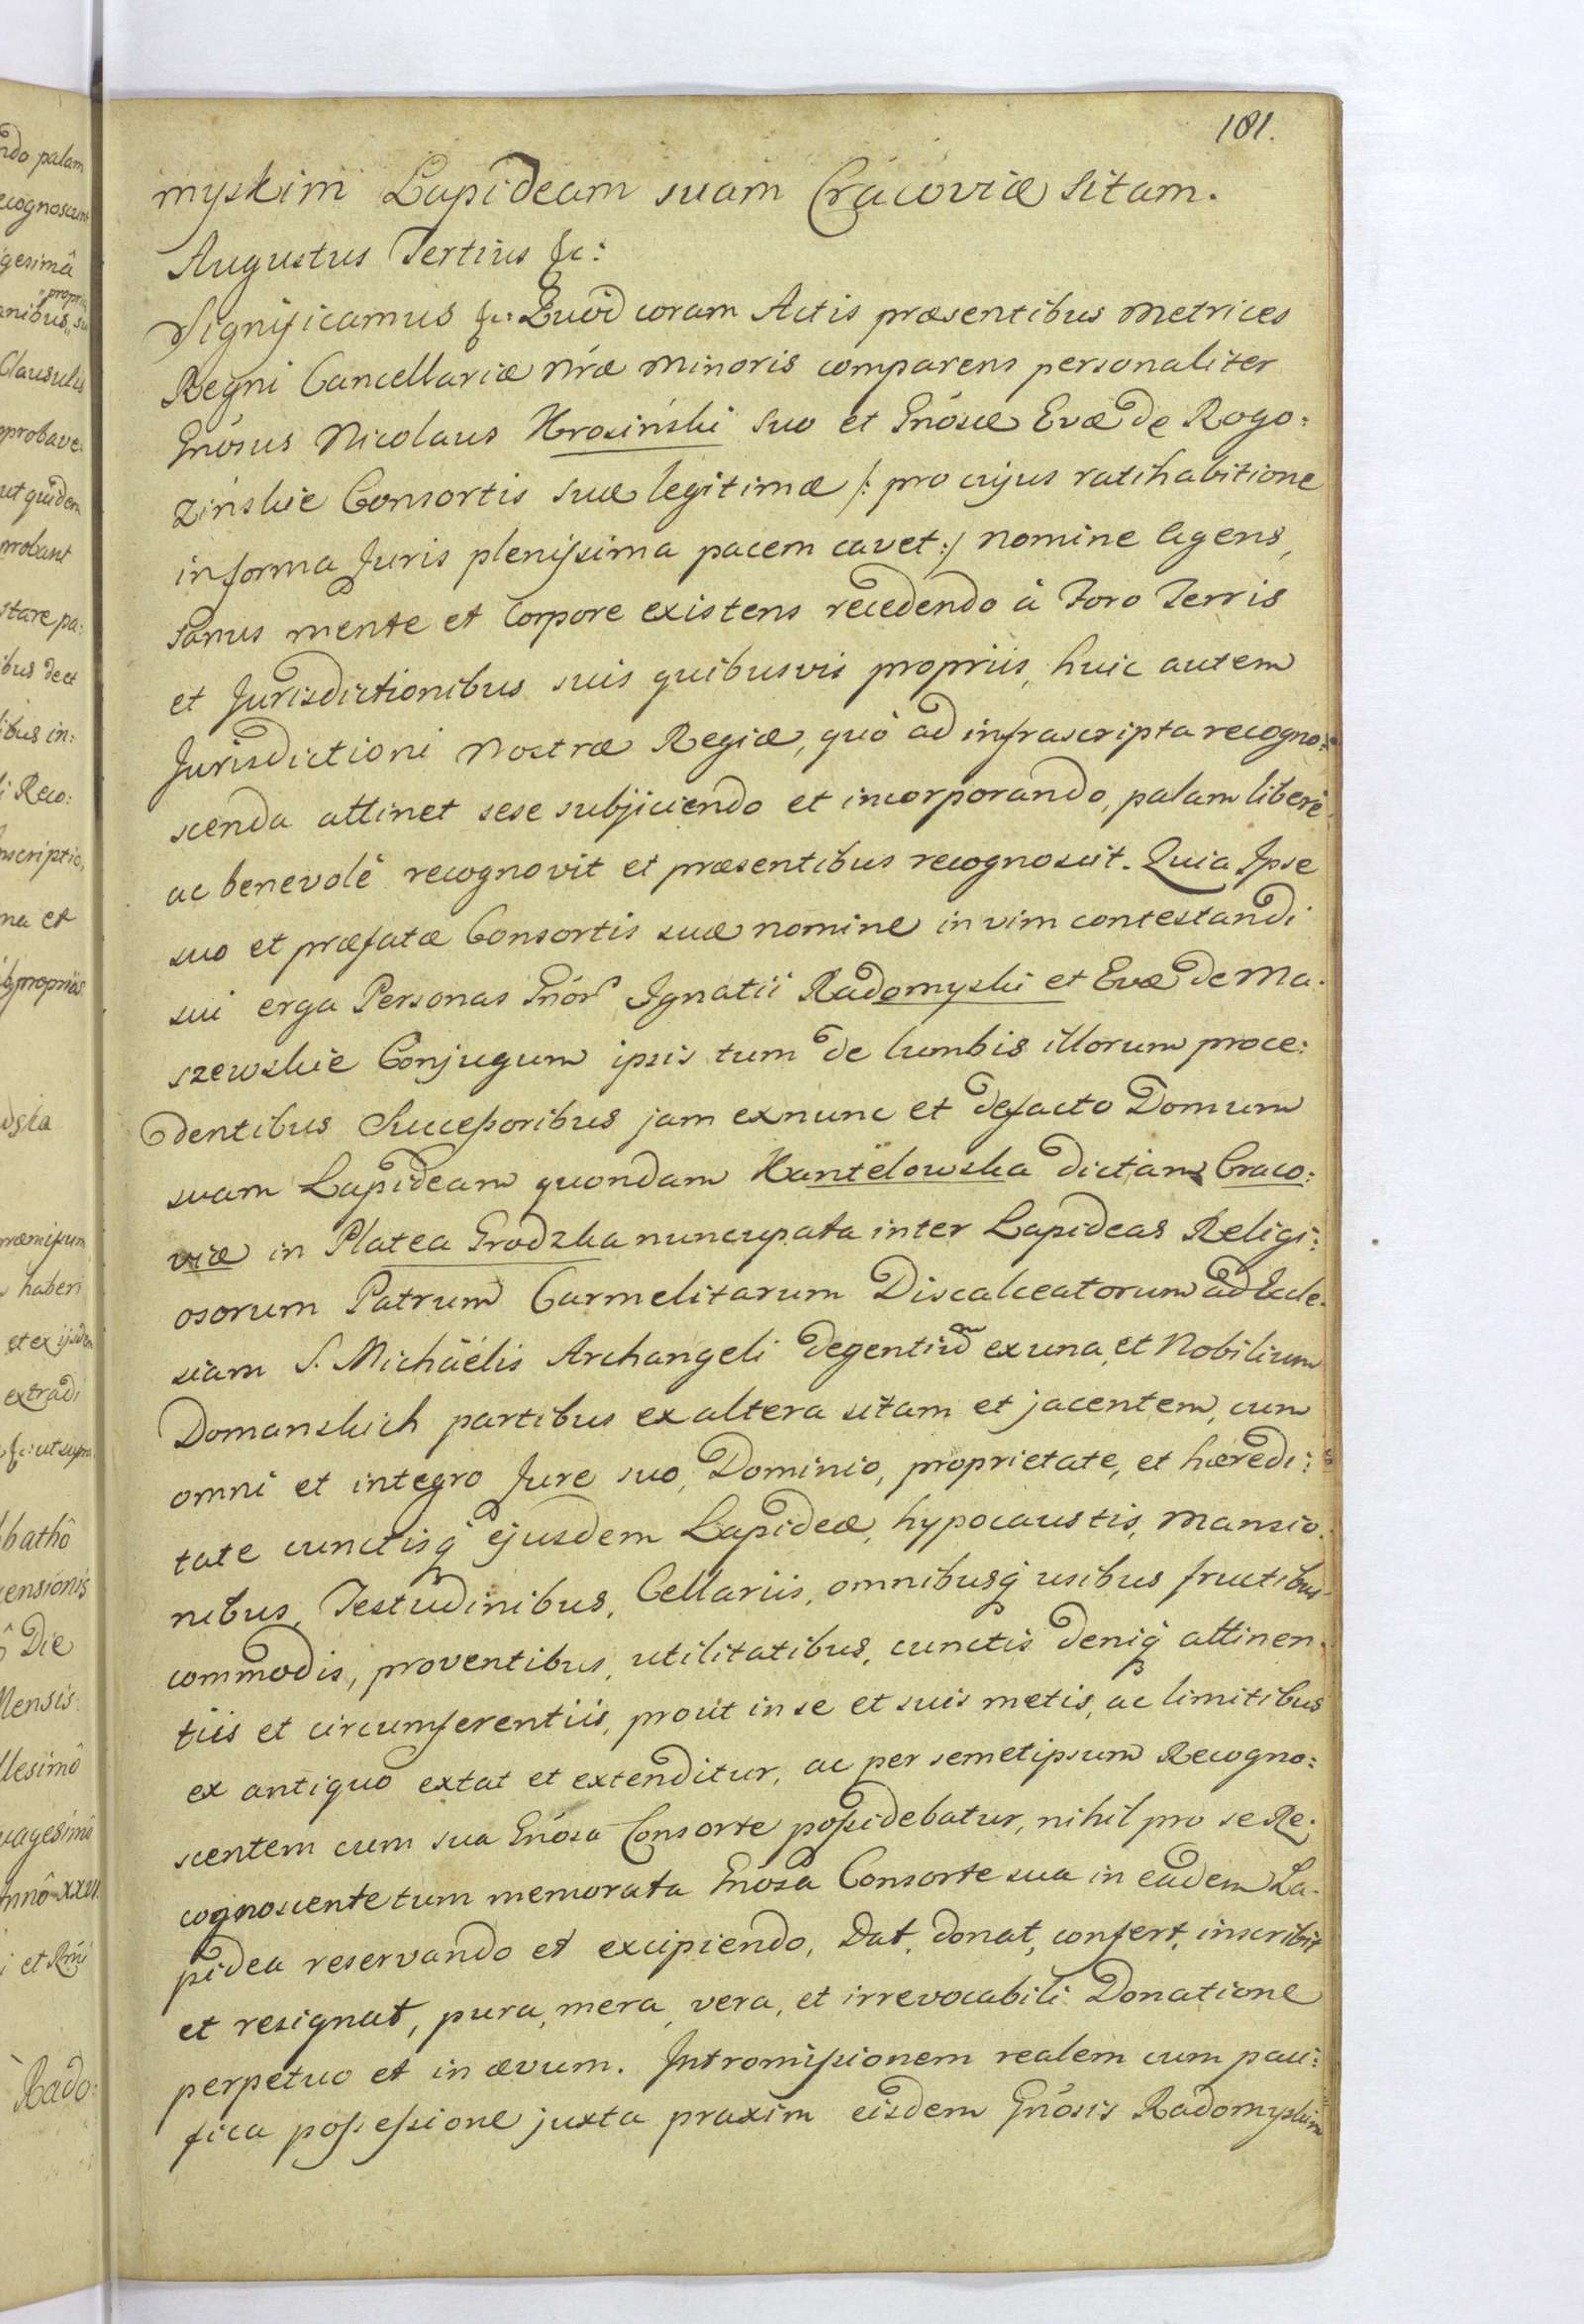 181.
myskim Lapideam suam Cracoviæ sitam.
Augustus Tertius &c:
Significamus &c: Quod coram Actis præsentibus Metrices
Regni Cancellariæ Nræ Minoris comparens personaliter
Gnosus Nicolaus Krosiński suo et Gnosæ Evæ de Rogo:
zińskie Consortis suæ legitimæ /: pro cujus ratihabitione
in forma Juris plenissima pacem cavet :/ nomine agens,
sanus mente et Corpore existens recedendo à Foro Terris
et Jurisdictionibus suis quibusvis propriis, huic autem
Jurisdictioni Nostræ Regiæ, quò ad infrascripta recogno:
scenda attinet sese subjiciendo et incorporando, palam liberè
ac benevolè recognovit et præsentibus recognoscit. Quia Ipse
suo et præfatæ Consortis suæ nomine in vim contestandi
sui erga Personas Gnór Ignatii Radomyski et Evæ de Ma:
szewskie Conjugum ipsis tum de lumbis illorum proce:
dentibus Successoribus jam ex nunc et de facto Domum
suam Lapideam quondam Kantelowska dictam Craco:
viæ in Platea Grodzka nuncupata inter Lapideas Religi:
osorum Patrum Carmelitarum Discalceatorum ad Eccle:
siam S. Michäelis Archangeli degentiū ex una, et Nobilium
Domanskich partibus ex altera sitam et jacentem, cum
omni et integro Jure suo, Dominio, proprietate, et hæredi:
tate cunctisq ejusdem Lapideæ, hypocaustis, Mansio:
nibus, Testudinibus, Cellariis, omnibusq usibus fructibus
commodis, proventibus, utilitatibus, cunctis deniq attinen:
tiis et circumferentiis, prout in se et suis metis, ac limitibus
ex antiquo extat et extenditur, ac per semetipsum Recogno:
scentem cum sua Gnósa Consorte possidebatur, nihil pro se Re:
cognoscente tum memorata Gnósa Consorte sua in eadem La:
pidea reservando et excipiendo, Dat, donat, confert, inscribit
et resignat, pura, mera, vera, et irrevocabili Donatione
perpetuo et in ævum. Intromissionem realem cum paci:
fica possessione juxta praxim eisdem Gnósis Radomyskim